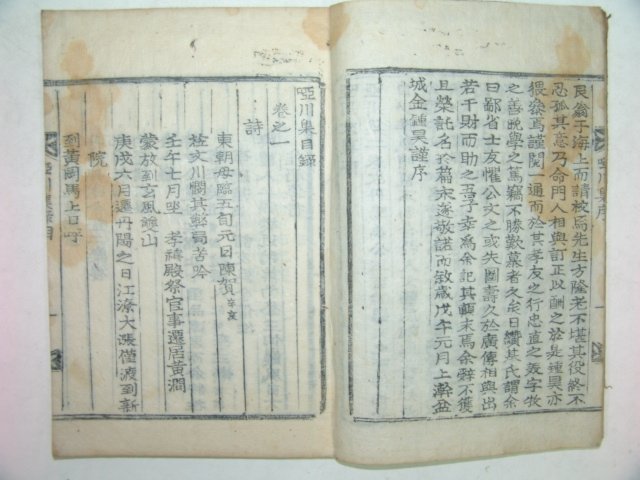 艮翁于海上而請校焉先生方隆老不堪其役終不
忍孤其意乃命門人相與訂正以酬之於是鍾昊亦
猥參焉謹閱一通而於其孝友之行忠直之簽字牧
之善晩學之篤竊不勝歎慕者久矣日纘其氏謂余
曰鄙省士友懼公文之或失圖壽久於廣傳相與出
若干財而助之吾子幸為余記其顚末焉余辭不獲
且榮託名於篇末遂敬諾而敏歲戊午元月上澣盆
城金鍾昊謹序
啞川集序
啞川集目錄
卷之一
詩
東朝母臨五旬元日陳賀 辛亥
在文川憫其獘局苦吟
壬午七月坐 孝禧殿祭官事遷居黃澗
蒙放到玄風灉山
庚戌六月遷丹陽之日江漆大漲僅渡到新
院
到黃岡馬上口呼
啞川集目